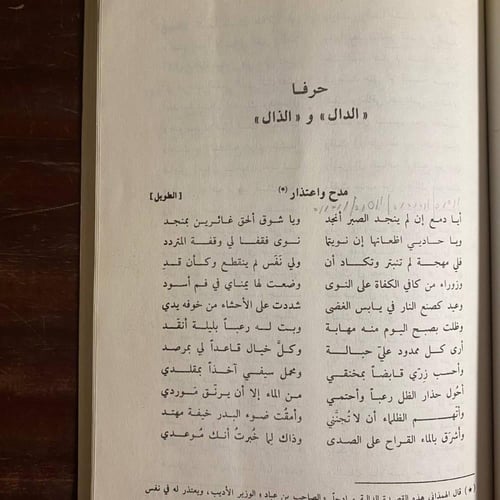 حرفا
«الدال» و «الذال»
مدح واعتذار (*) [الطويل]
أيا دمع إن لم ينجد الصبر أنجد ويا شوق ألحق غائرين بمنجد
ويا حاديي اظعانها إن نويتما نوى فقفا لي وقفة المتردد
فلي مهجة لم تنبتر وتكاد أن ولي نَفَس لم ينقطع وكأن قد
وزوراء من كافي الكفاة على النوى وضعت لها يمناي في فم أسود
وعيد كصنع النار في يابس الغضى شددت على الأحشاء من خوفه يدي
وظلت بصبح اليوم منه مهابة وبت لـه رعباً بليلة أنقَد
أرى كل ممدود عليّ حبالة وكلَّ خيال قاعداً لي بمرصد
وأحسب زرّي قابضاً بمخنقي ومحمل سيفي آخذاً بمقلدي
أحُول حذار الظل رعباً وأحتمي من الماء إلا أن يرنّق مَوردي
وأتّهم الظلماء أن لا تُجنَّني وأمقُت ضوء البدر خيفة مهتد
وأشرَق بالماء القراح على الصدى وذاك لما خُبرتُ أنك مُوعدي
(*) قال الهمذاني هذه القصيدة الدالية «الصاحب بن عباد» الوزير الأديب، ويعتذر له في نفس